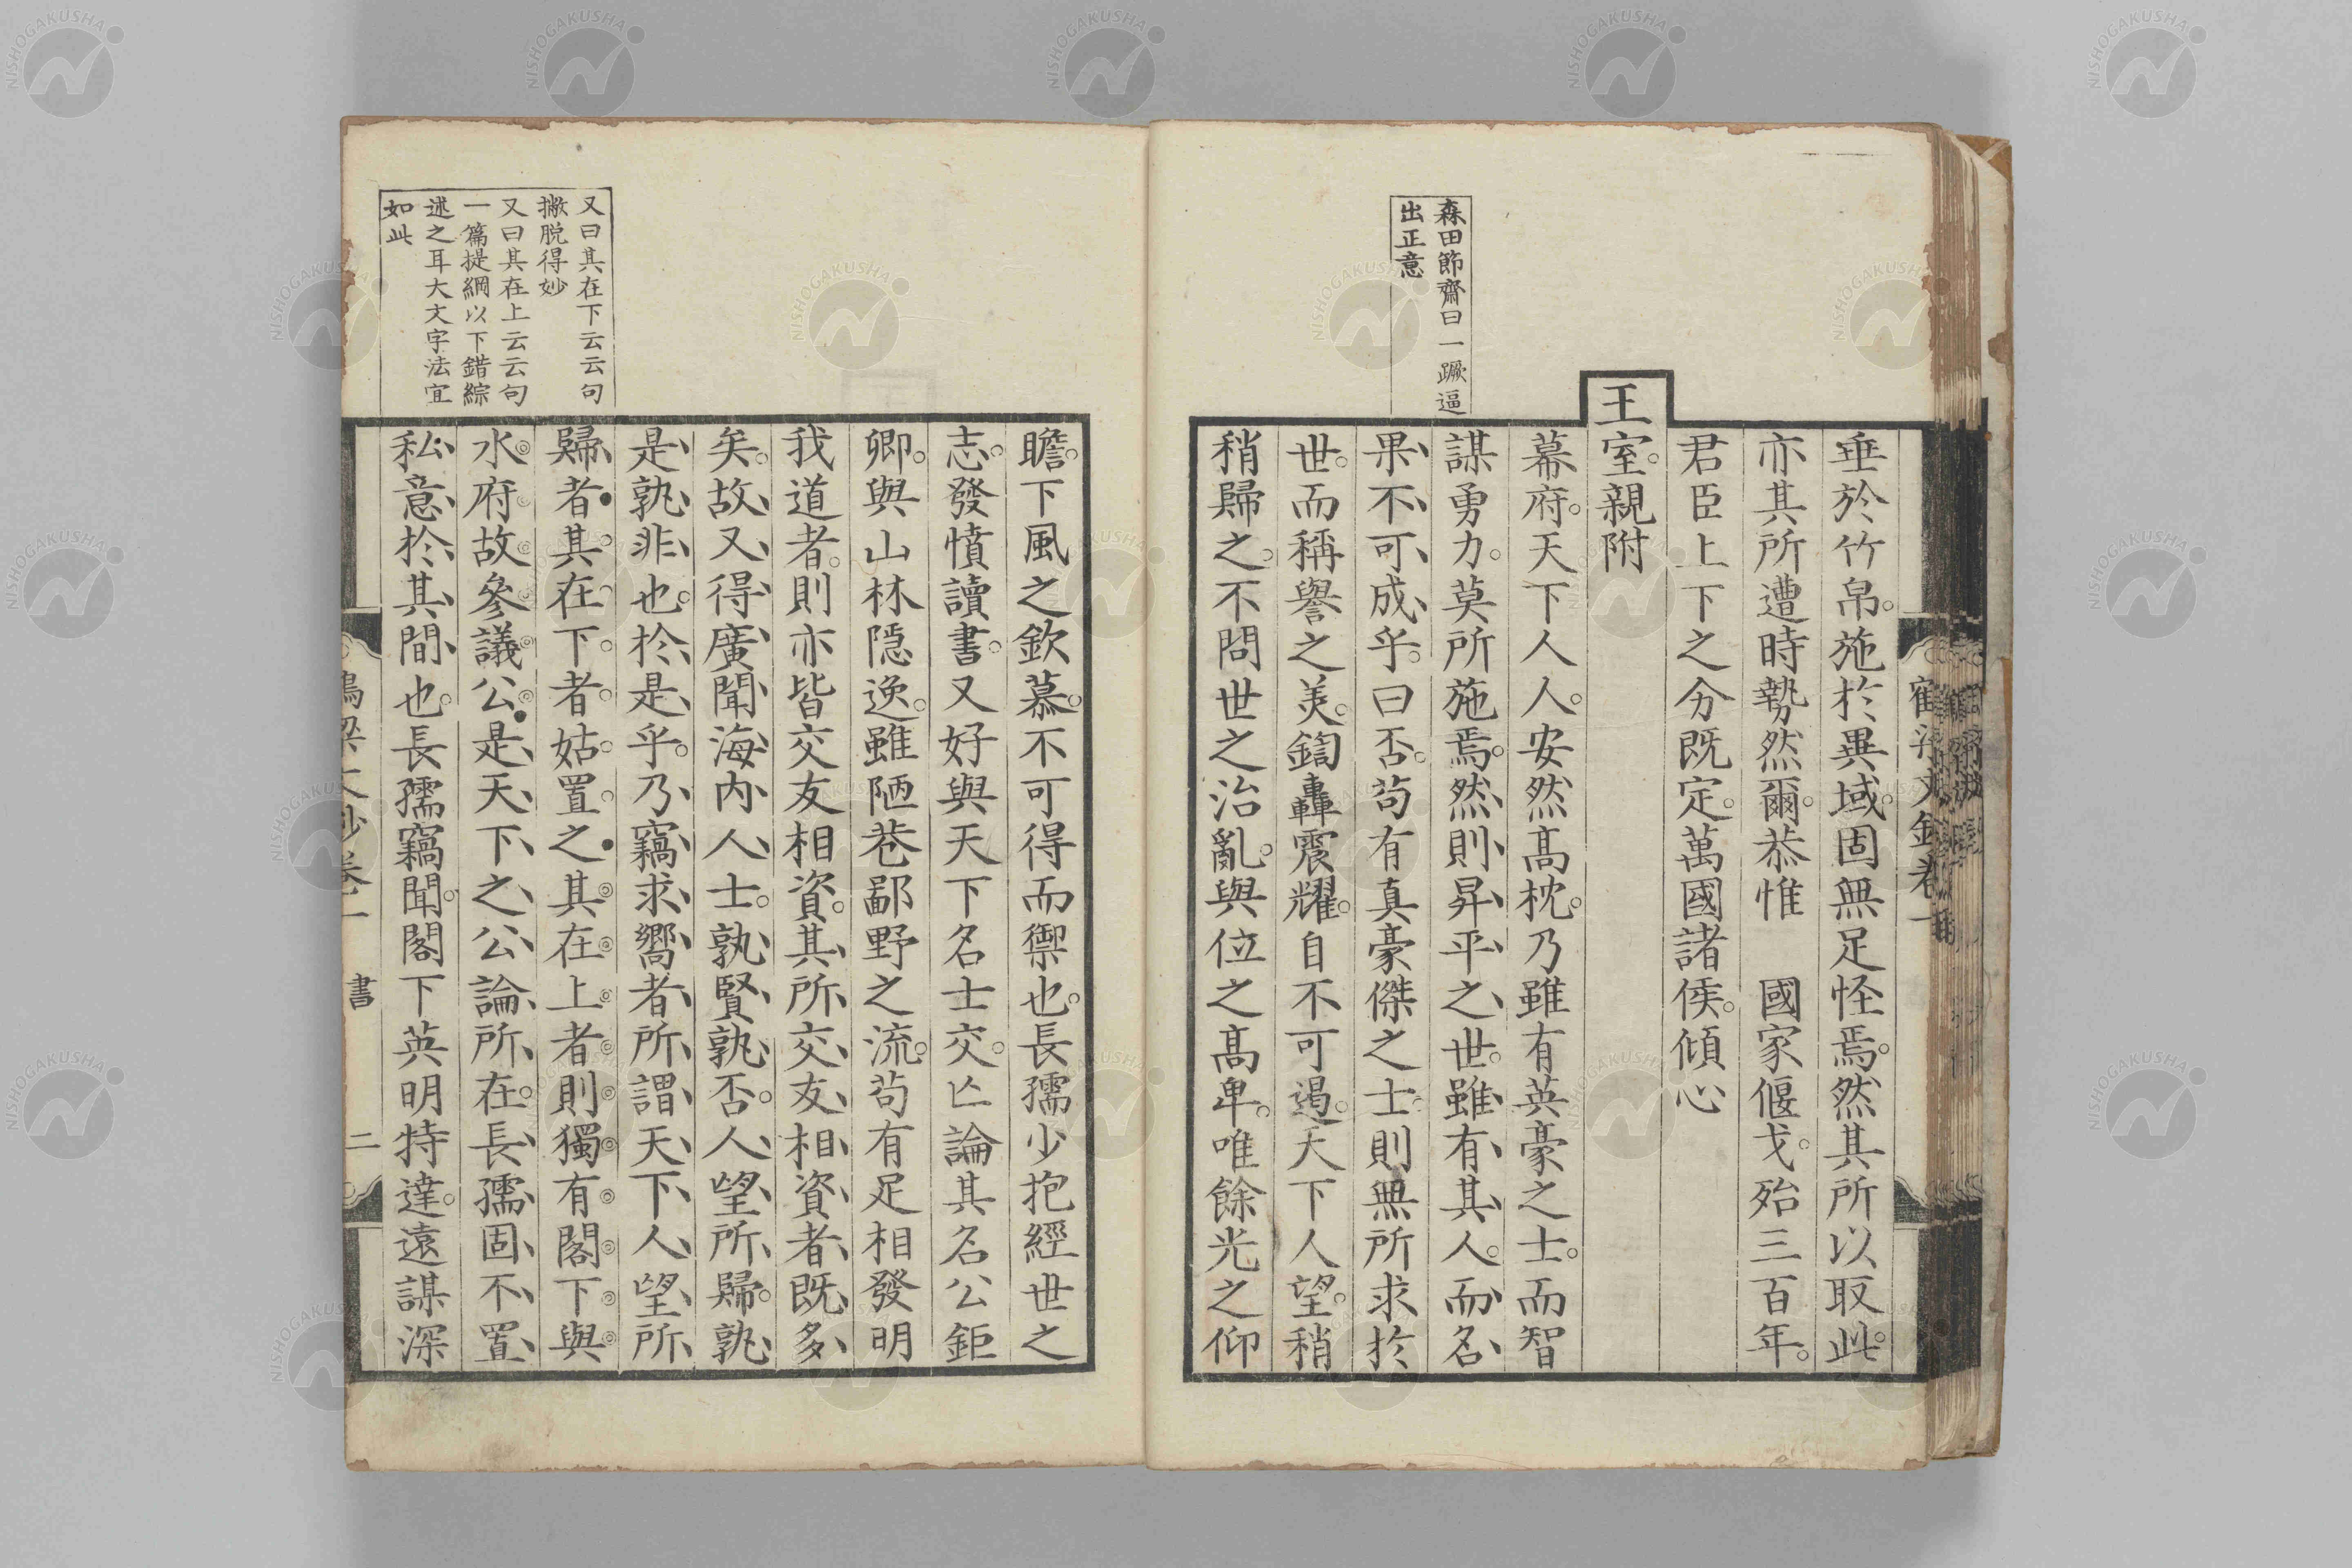 森田節齋曰一蹶逼
出正意
垂於竹帛。施於異域。固無足怪焉。然其所以取此。
亦其所遭時勢然爾。恭惟　國家偃戈。殆三百年。
君臣上下之分既定。萬國諸侯。傾心
王室。親附
幕府。天下人人。安然高枕。乃雖有英豪之士。而智
謀勇力。莫所施焉。然則昇平之世。雖有其人。而名
果不可成乎。曰否。苟有真豪傑之士。則無所求於
世。而稱譽之美。鍧轟震耀。自不可遏。天下人望。稍
稍歸之。不問世之治亂。與位之高卑。唯餘光之仰
又曰其在下云云句
撇脱得妙
又曰其在上云云句
一篇提綱以下錯綜
述之耳大文字法宜
如此
瞻。下風之欽慕。不可得而禦也。長孺少抱經世之
志。發憤讀書。又好與天下名士交。亾論其名公鉅
卿。與山林隱逸。雖陋巷鄙野之流。苟有足相發明
我道者。則亦皆交友相資。其所交友相資者既多
矣。故又得廣聞海內人士。孰賢孰否。人望所歸。孰
是孰非也。於是乎。乃竊求嚮者所謂天下人望所
歸者。其在下者。姑置之。其在上者。則獨有閣下與
水府故參議公。是天下之公論所在。長孺固不置
私意於其間也。長孺竊聞。閣下英明特達。遠謀深
書
二
NISHOGAKUSHA